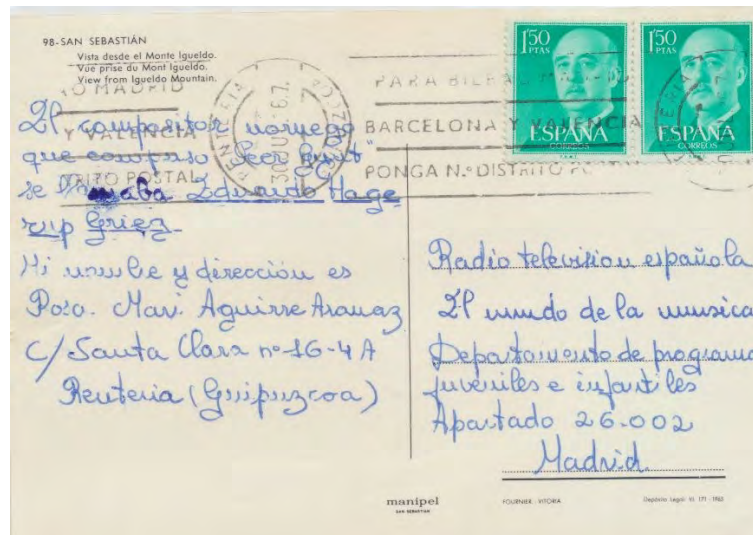 98-SAN SEBASTIÁN
Vista desde el Monte Igueldo.
Vue prise du Mont Igueldo.
View from Igueldo Mountain.
O MADRID
Y VALENCIA
TRITO POSTAL
RENTERIA
30 JUL 67
PARA BILBAO
BARCELONA Y VALENCIA
PONGA N.º DISTRITO PO
1'50
PTAS
ESPAÑA
CORREOS
1'50
PTAS
ESPAÑA
CORREOS
El compositor noruego
que compuso Peer Gynt
se llamaba Eduardo Hage
rup Griez
Mi nombre y dirección es
Pozo. Mari Aguirre Arauaz
C/ Santa Clara nº-16-4 A
Renteria (Guipuzcoa)
Radio television española
El mundo de la musica
Departamento de programa
juveniles e infantiles
Apartado 26.002
Madrid.
manipel
SAN SEBASTIAN
FOURNIER - VITORIA
Depósito Legal: VI. 171 - 1962